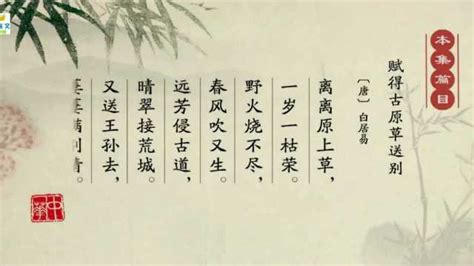 本集篇目
赋得古原草送别
〔唐〕白居易
离离原上草，
一岁一枯荣。
野火烧不尽，
春风吹又生。
远芳侵古道，
晴翠接荒城。
又送王孙去，
萋萋满别情。
中华